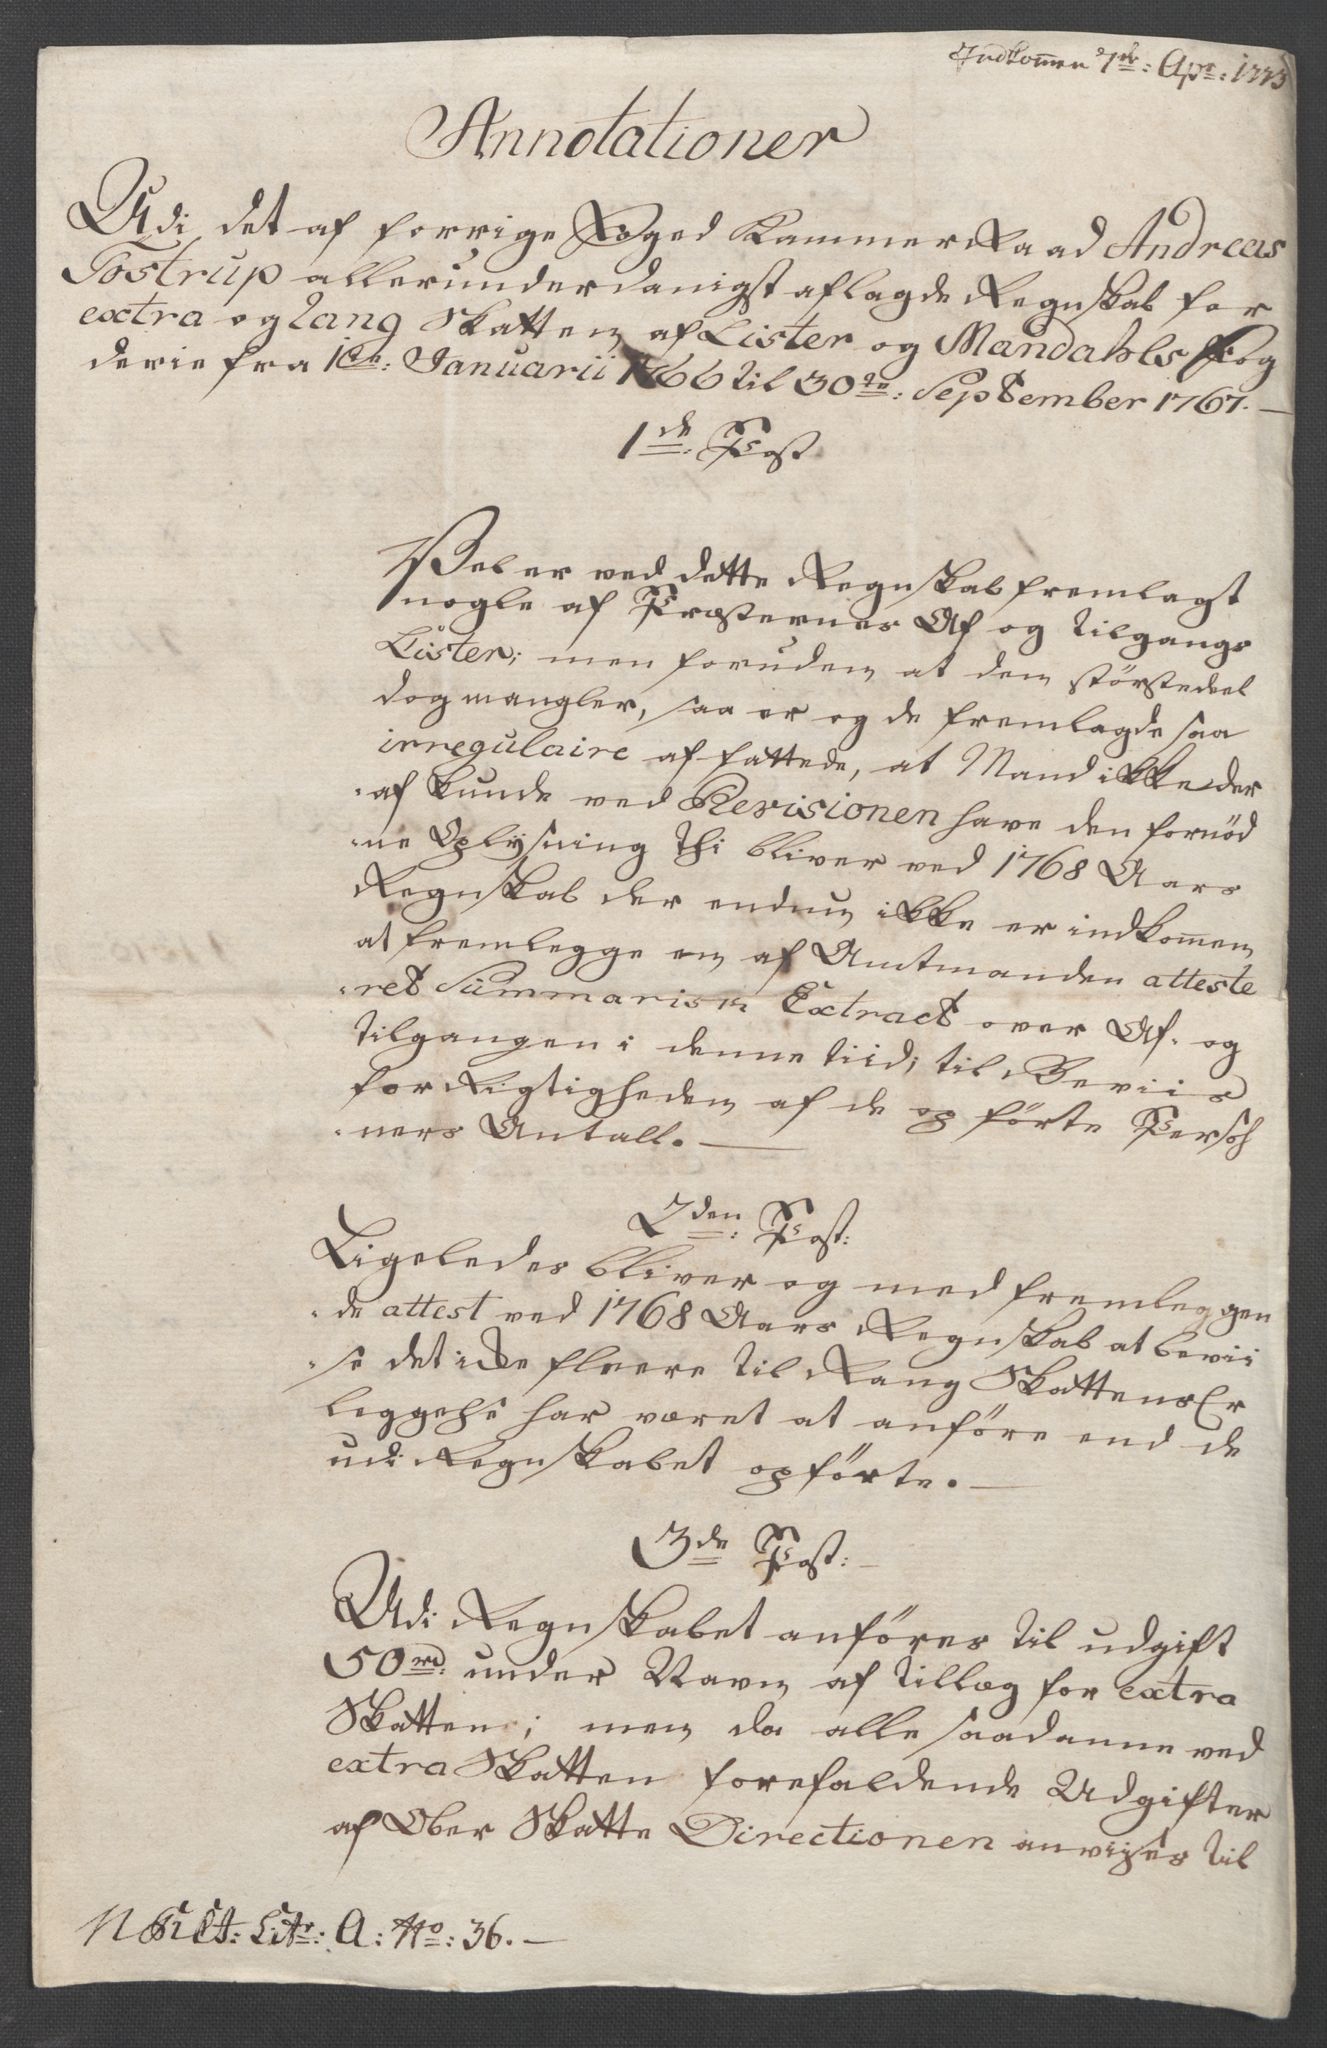 Indkommen 7de: Apr: 1773
Annotationer
Udi det af forrige Foged Kammer Raad Andreas
Tostrup allerunderdanigst aflagde Regnskab for
extra og Rang Skatten af Lister og Mandahls Fog
derie fra 1ste: Januarii 1766 til 30te: September 1767.
1de Post
Vel er ved dette Regnskab fremlagt
nogle af Præsternes Af og Tilgangs
Lister; men foruden at dem störstedeel
dog mangler, saa er og de fremlagde saa
irregulaire affattede, at Mand ikke der
af kunde ved Revisionen have den fornöd
ne Oplysning Thi bliver ved 1768 Aars
Regnskab der endnu ikke er indkommen
at fremlegge en af Amtmanden atteste
ret Summarisk Extract over Af- og
Tilgangen i denne Tiid; til Beviis
for Rigtigheden af de opförte Persoh
ners Antall.
2den: Post:
Ligeledes bliver og med fremleggen
de attest ved 1768 Aars Regnskab at bevii
se det icke fleere til Rang Skattens Er
leggelse har været at anföre end de
udi Regnskabet opförte.
3de Post:
Udi Regnskabet anföres til udgift
50 rd. under Navn af Tillæg for extra
Skatten; men da alle saadanne ved
extra Skatten forefaldende Udgifter
af Ober Skatte Directionen anvises til
Litr: A: No: 36.